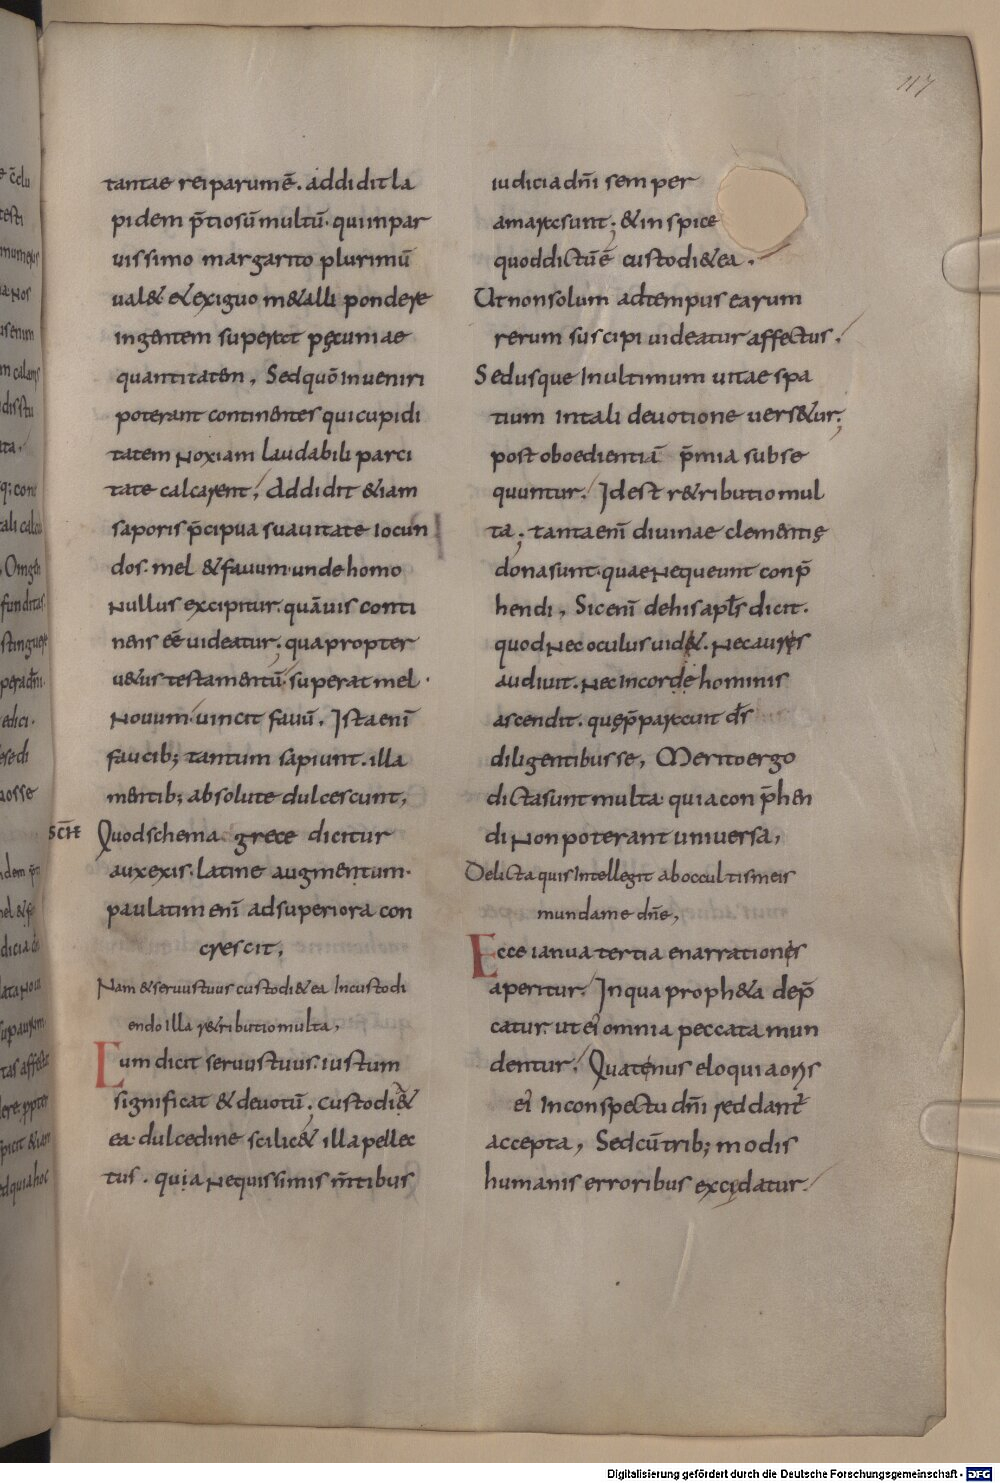 117
tantae rei parum ē. addidit la
pidem p̄tiosū multū. qui in par
uissimo margarito plurimū
ual& & exiguo m&alli pondere
ingentem superat pęcuniae
quantitatem, Sed quō inueniri
poterant continentes qui cupidi
tatem noxiam laudabili parci
tate calcarent; Addidit &iam
saporis p̄cipua suauitate iocun
dos. mel & fauum. unde homo
nullus excipitur. quāuis conti
nens eē uideatur; qua propter
u&us testamentū superat mel.
nouum uincit fauū, Ista enī
faucib; tantum sapiunt. illa
mentib; absolute dulcescunt,
SCH Quod schema grece dicitur
auxexis. latine augmentum.
paulatim enī ad superiora con
crescit,
Nam & seruus tuus custodi& ea In custodi
endo illa r&ributio multa,
Cum dicit seruus tuus. iustum
significat & deuotū; custodi&
ea. dulcedine scilic& illa pellec
tus. quia nequissimis m̄tibus
iudicia dn̄i semper
amarescunt; & inspice
quod dictū ē custodi& ea.
Ut non solum ad tempus earum
rerum suscipi uideatur affectus.
Sed usque In ultimum uitae spa
tium in tali deuotione uers&ur;
post oboedientiā p̄mia subse
quuntur. Id est r&ributio mul
ta; tanta enī diuinae clementię
dona sunt. quae nequeunt conp̄
hendi, Sic enī de his apl̄s dicit.
quod nec oculus uid&. nec aures
audiuit. nec in corde hominis
ascendit. quę p̄parauit d̄s
diligentibus se, Merito ergo
dicta sunt multa. quia con p̄hen
di non poterant uniuersa,
Delicta quis Intellegit ab occultis meis
munda me dn̄e,
Ecce ianua tertia enarrationis
aperitur. In qua proph&a dep̄
catur. ut ei omnia peccata mun
dentur. Quatenus eloquia oris
ei In conspectu dn̄i reddant̄
accepta, Sed cū trib; modis
humanis erroribus excidatur.
Digitalisierung gefördert durch die Deutsche Forschungsgemeinschaft - DFG